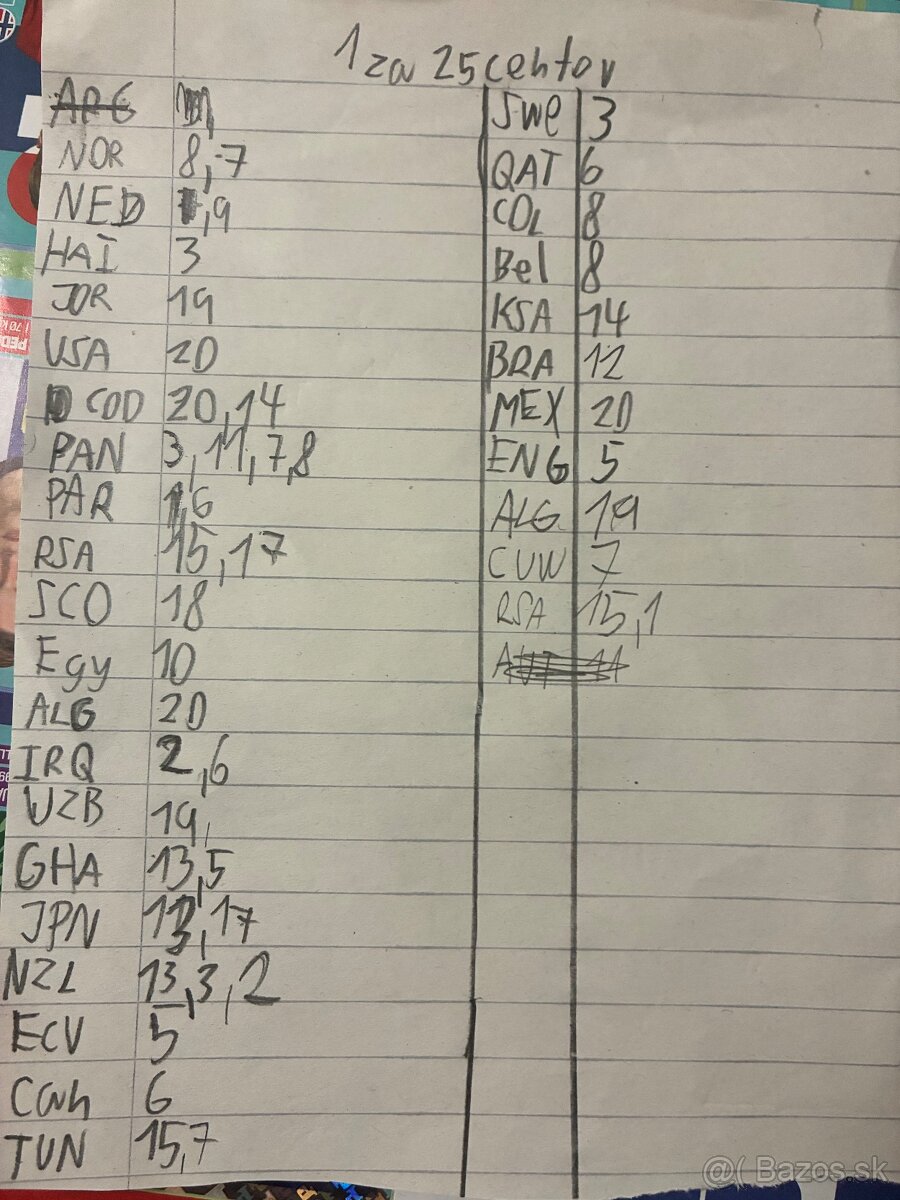 1 za 25 centov
ARG
NOR 8, 7
NED , 9
HAI 3
JOR 19
USA 20
COD 20, 14
PAN 3, 11, 7, 8
PAR 1, 6
RSA 15, 17
SCO 18
Egy 10
ALG 20
IRQ 2, 6
UZB 19,
GHA 13, 5
JPN , 17
NZL 13, 3, 2
ECU 5
Can 6
TUN 15, 7
Swe 3
QAT 6
COL 8
Bel 8
KSA 14
BRA 12
MEX 20
ENG 5
ALG 19
CUW 7
RSA 15, 1
AUT 11
@( Bazos.sk